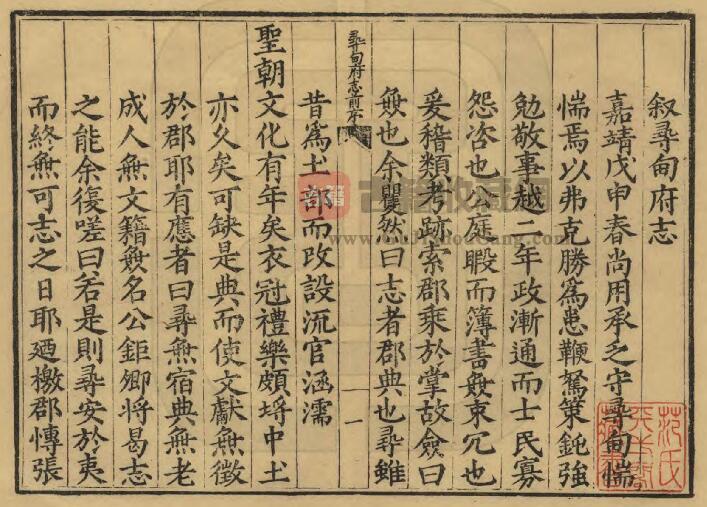 叙尋甸府志
嘉靖戊申春尚用承乏守尋甸惴
惴焉以弗克勝為患鞭駑策鈍強
勉敬事越二年政漸通而士民寡
怨咨也公庭暇而簿書無束冗也
爰稽類考跡索郡乘於掌故僉曰
無也余矍然曰志者郡典也尋雖
尋甸府志前序
一
昔為土部而改設流官涵濡
聖朝文化有年矣衣冠禮樂頗埒中土
亦久矣可缺是典而使文獻無徵
於郡耶有應者曰尋無宿典無老
成人無文籍無名公鉅卿將曷志
之能余復嗟曰若是則尋安於夷
而終無可志之日耶廼檄郡慱張